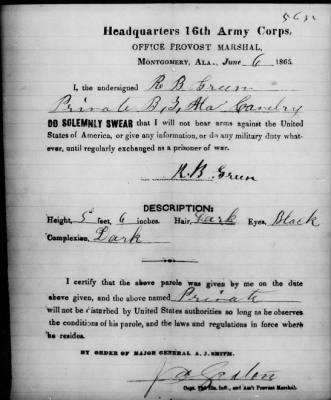 Headquarters 16th Army Corps,
OFFICE PROVOST MARSHAL,
MONTGOMERY, ALA., June 6 1865.
I, the undersigned R B Green
Private B, 7, Ala Cavalry
DO SOLEMNLY SWEAR that I will not bear arms against the United
States of America, or give any information, or do any military duty what-
ever, until regularly exchanged as a prisoner of war.
R. B. Green
DESCRIPTION:
Height, 5 feet, 6 inches. Hair, Dark Eyes, Black
Complexion, Dark
I certify that the above parole was given by me on the date
above given, and the above named Private
will not be disturbed by United States authorities so long as he observes
the conditions of his parole, and the laws and regulations in force where
he resides.
BY ORDER OF MAJOR GENERAL A. J. SMITH.
Ills. Inft., and Ass't Provost Marshal.